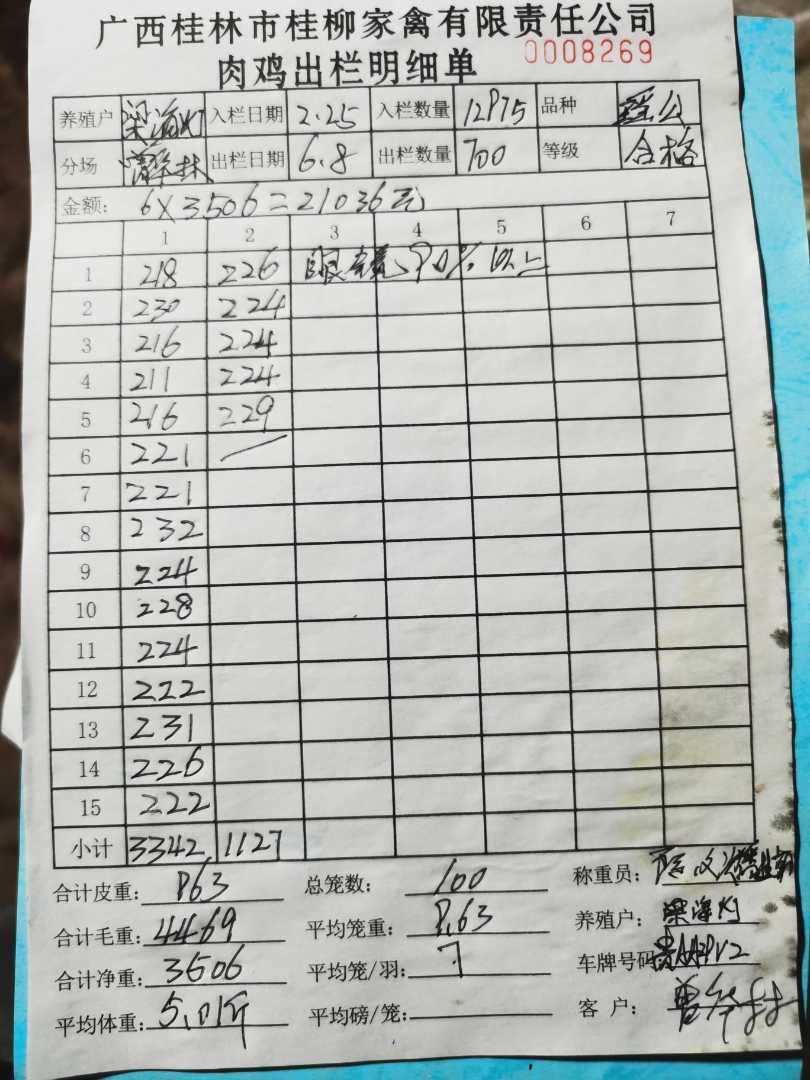 广西桂林市桂柳家禽有限责任公司
0008269
肉鸡出栏明细单
养殖户 梁海灯 入栏日期 2.25 入栏数量 12875 品种
分场 林 出栏日期 6.8 出栏数量 700 等级 合格
金额: 6×3506=21036元
1 2 3 4 5 6 7
1 218 226 眼 80% 以上
2 230 224
3 216 224
4 211 224
5 216 229
6 221
7 221
8 232
9 224
10 228
11 224
12 222
13 231
14 226
15 222
小计 3342 1127
合计皮重: 863 总笼数: 100 称重员:
合计毛重: 4469 平均笼重: 8.63 养殖户: 梁海灯
合计净重: 3606 平均笼/羽: 7 车牌号码
平均体重: 5.01斤 平均磅/笼: 客 户: